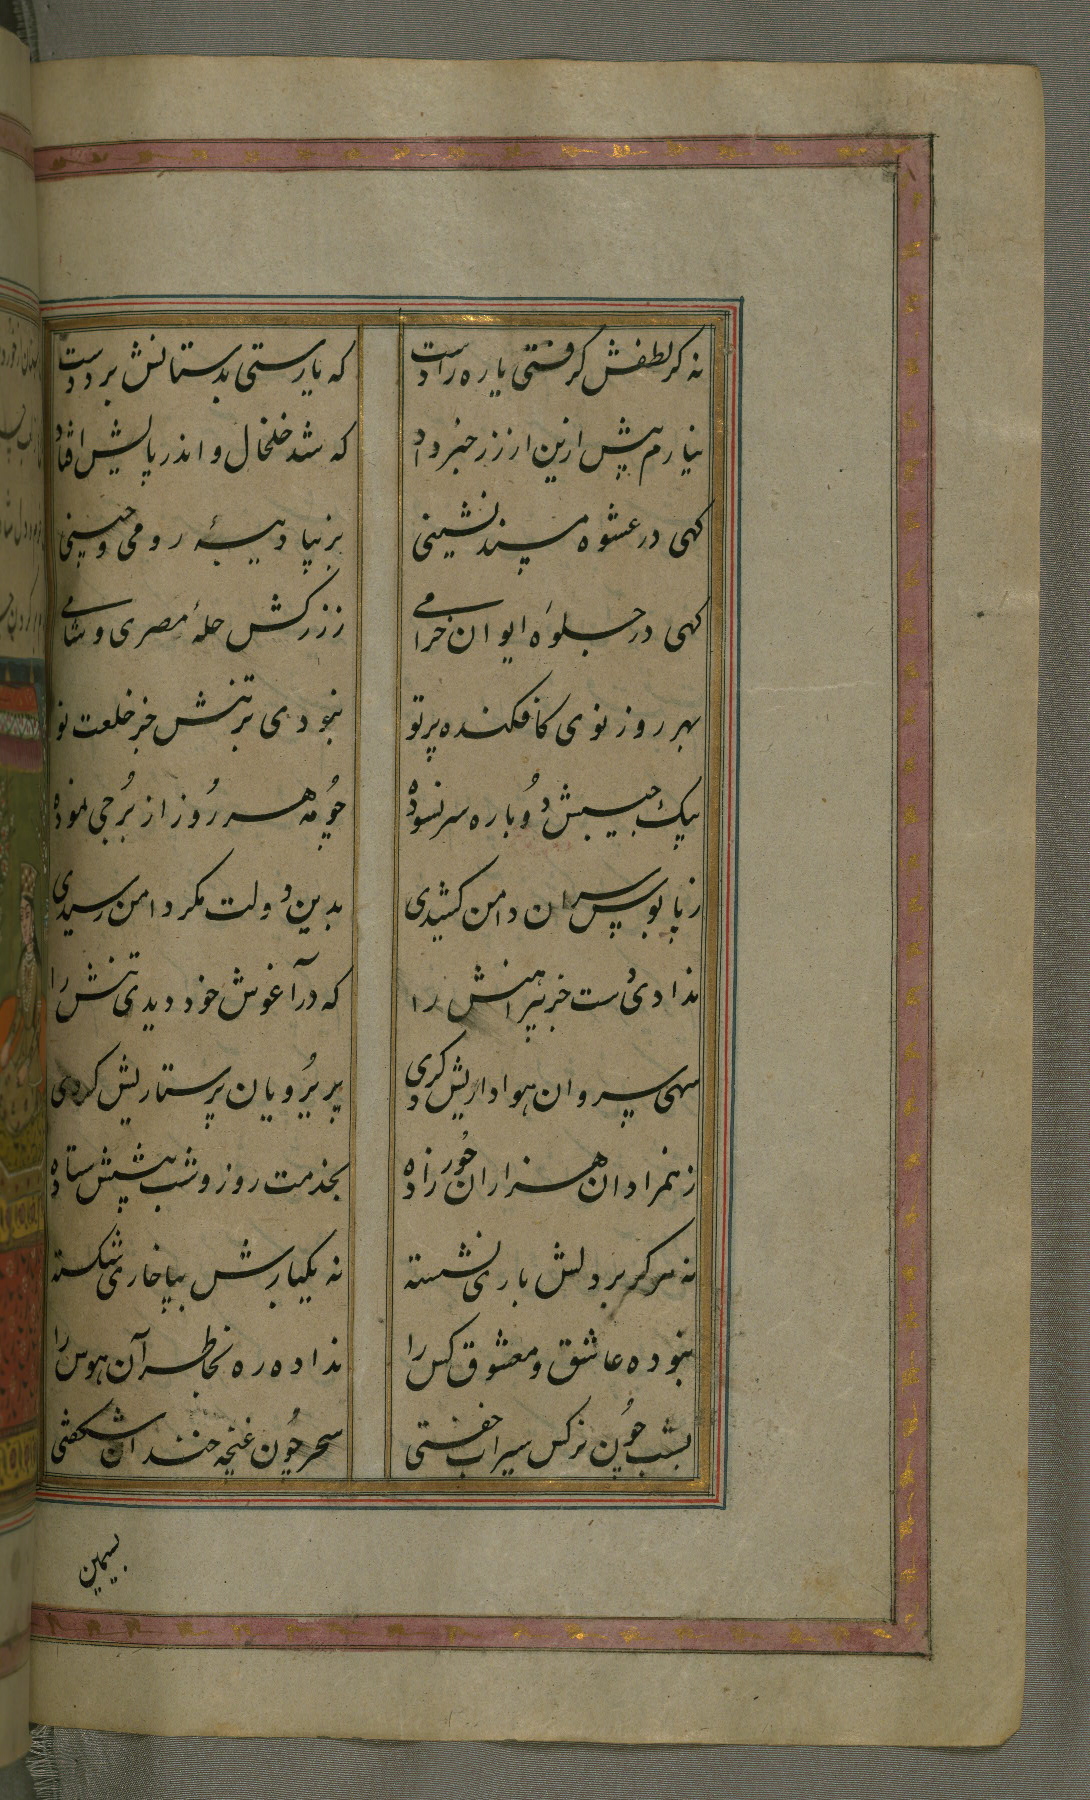 نه کر لطفش کرفتی یاره را دست که یارستی بدستانش بر دو دست
نیارم بیش ازین از زر خبر داد که شد خلخال و اندر پایش افتاد
کهی در عشوه مسند نشینی بزیبا دیبهٔ رومی و چینی
کهی در جلوهٔ ایوان خرامی ززرکش حلهٔ مصری و شامی
بهر روز نوی کافکنده پرتو نبودی بر تنش جز خلعت نو
بیک جیبش دوباره سر نسوده چو مه هر روز از برجی نموده
زپابوس سران دامن کشیدی بدین دولت مکر دامن رسیدی
ندادی دست جز پیراهنش را که در آغوش خود دیدی تنش را
سهی سروان هواداریش کردی پریرویان پرستاریش کردی
زهمزادان هزاران حور زاده بخدمت روز و شب پیشش ستاده
نه هرکز بر دلش باری نشسته نه یکبارش بپا خاری شکسته
نبوده عاشق و معشوق کس را نداده ره بخاطر آن هوس را
بشب چون نرکس سیراب خفتی سحر چون غنچه خندان شکفتی
بسیمین